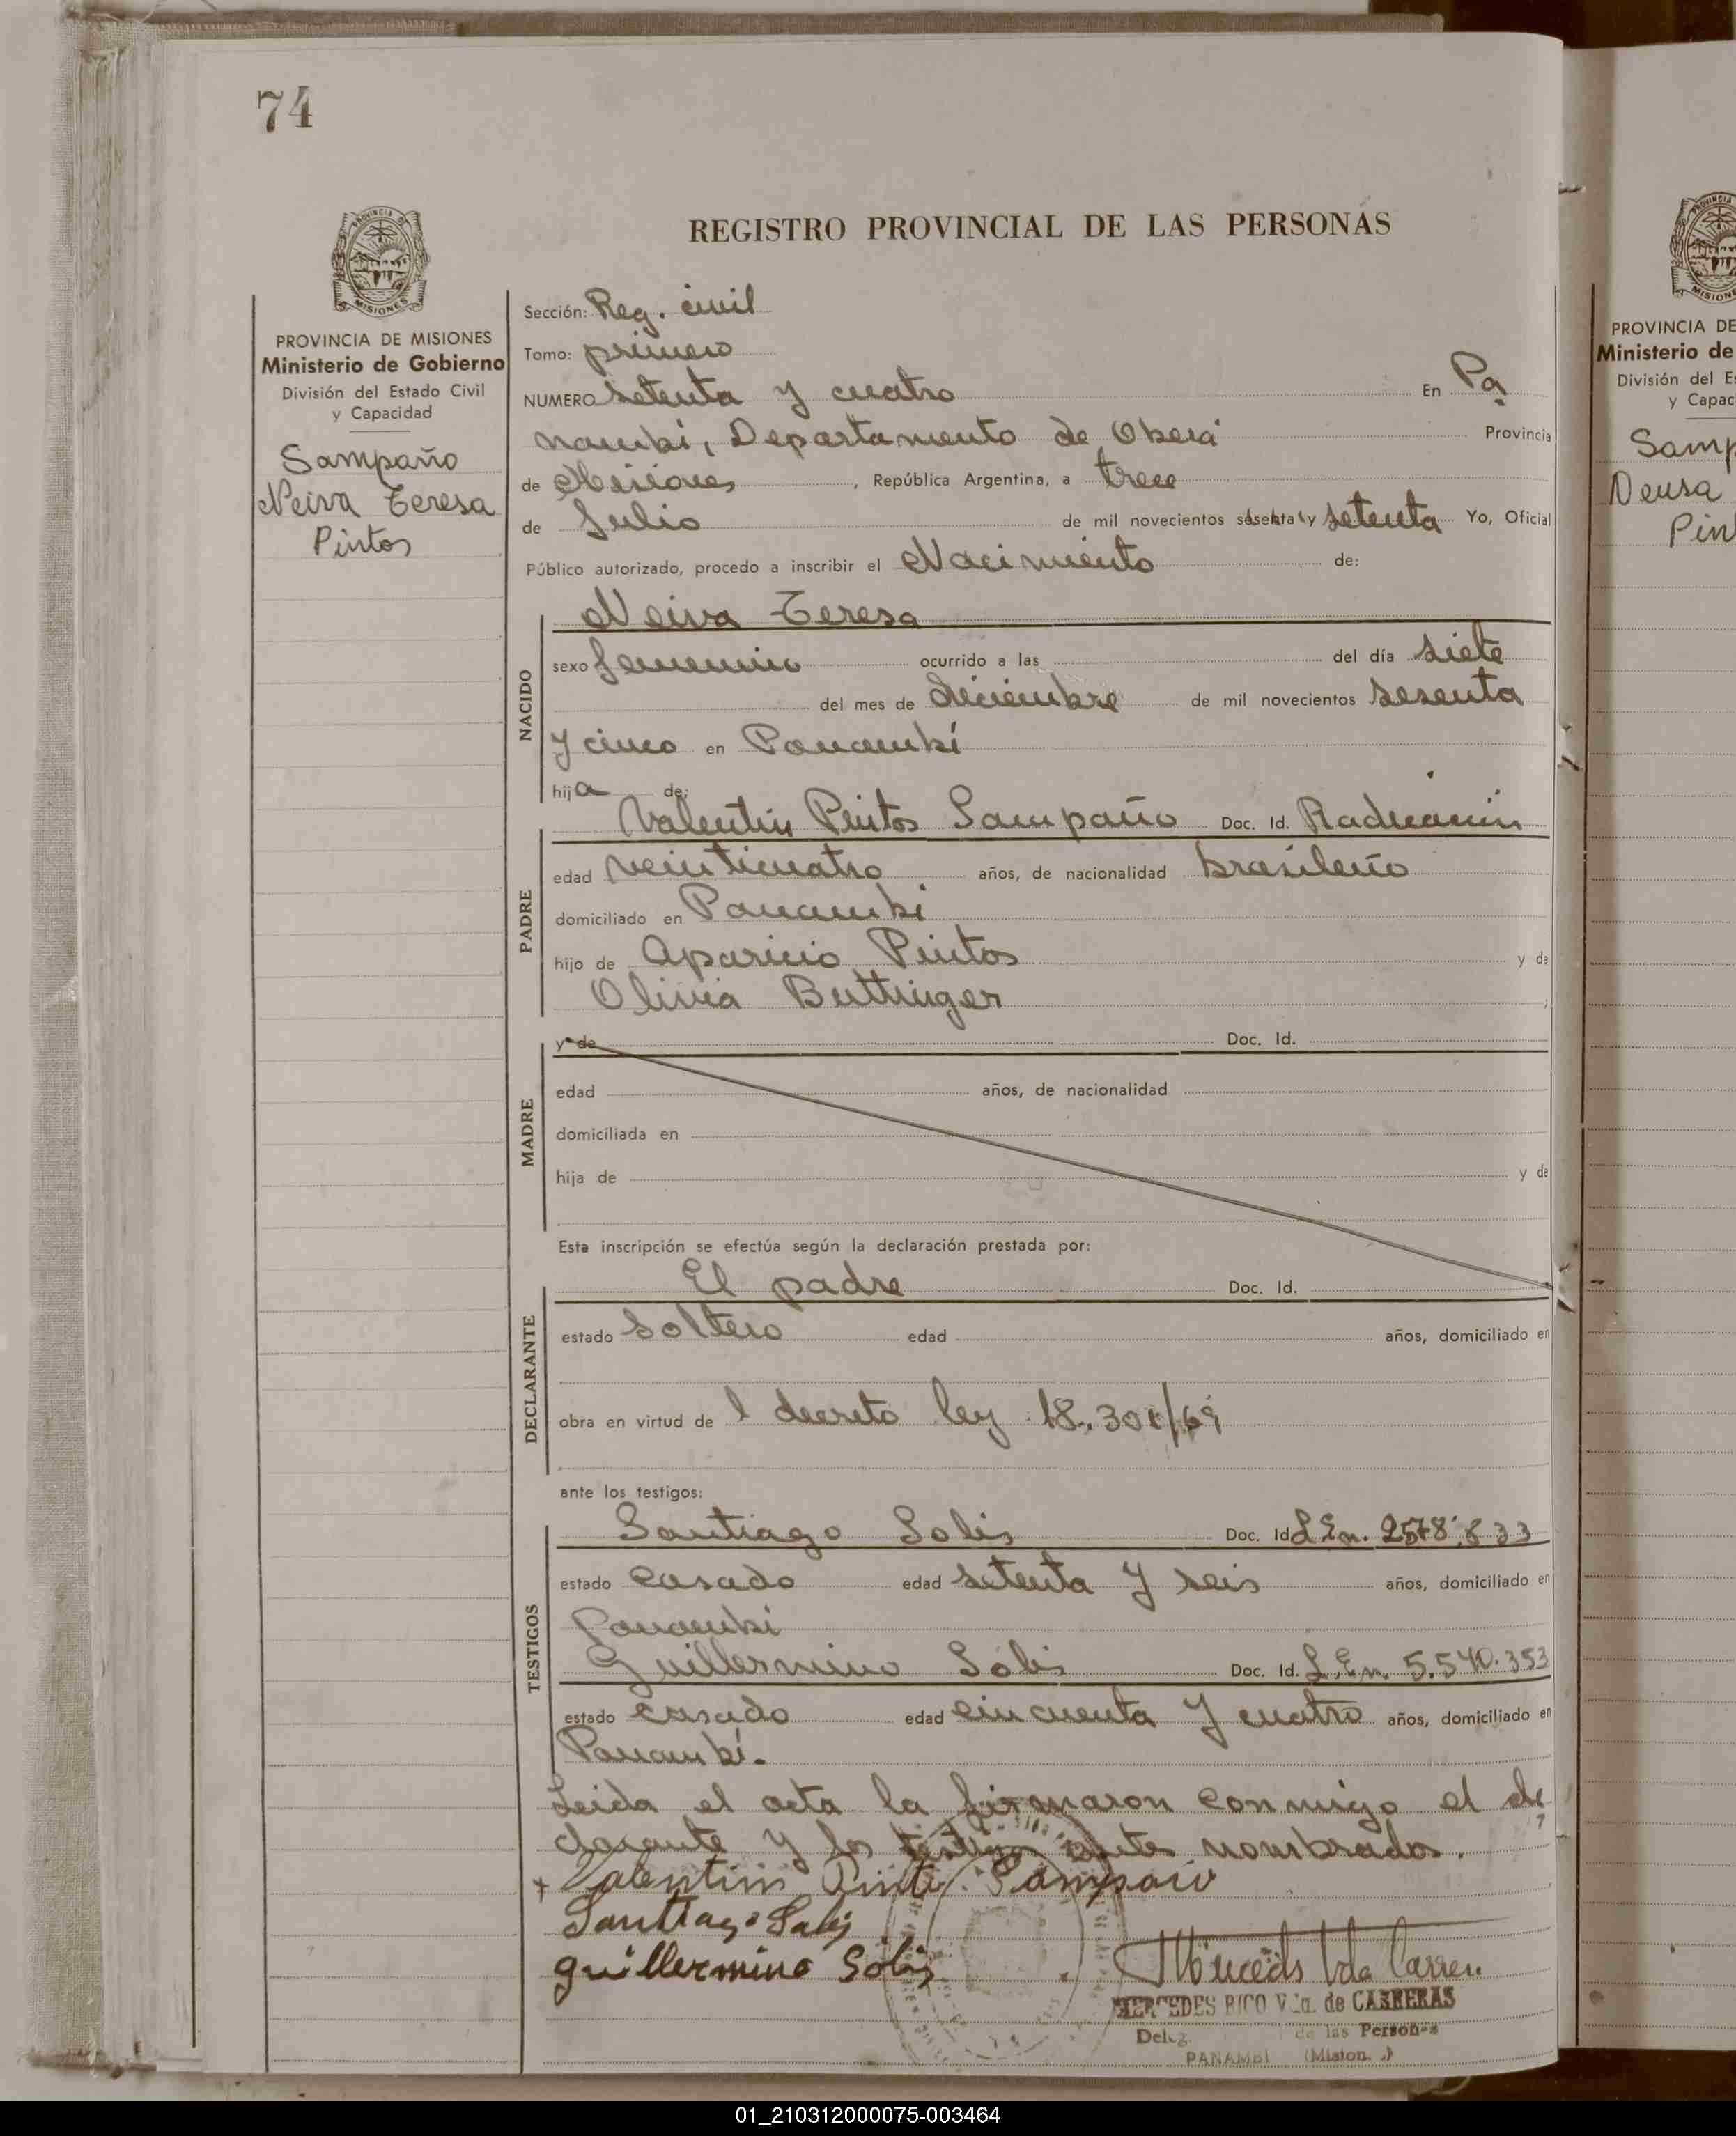 74
REGISTRO PROVINCIAL DE LAS PERSONAS
MISIONES
PROVINCIA DE MISIONES
Ministerio de Gobierno
División del Estado Civil
y Capacidad
Sampaño
Neiva Teresa
Pintos
Sección: Reg. civil
Tomo: primero
NUMERO setenta y cuatro En Pa
nambí, Departamento de Oberá Provincia
de Misiones, República Argentina, a trece
de Julio de mil novecientos sesenta y setenta Yo, Oficial
Público autorizado, procedo a inscribir el Nacimiento de:
NACIDO
Neiva Teresa
sexo femenino ocurrido a las del día siete
del mes de diciembre de mil novecientos sesenta
y cinco en Panambí
hija de:
PADRE
Valentin Pintos Sampaño Doc. Id.
edad veinticuatro años, de nacionalidad brasileño
domiciliado en Panambí
hijo de Aparicio Pintos y de
Olivia Buttinger
MADRE
y de Doc. Id.
edad años, de nacionalidad
domiciliada en
hija de y de
Esta inscripción se efectúa según la declaración prestada por:
DECLARANTE
El padre Doc. Id.
estado soltero edad años, domiciliado en
obra en virtud de l decreto ley 18.301/69
ante los testigos:
TESTIGOS
Santiago Solis Doc. Id. L.En. 2578.833
estado casado edad setenta y seis años, domiciliado en
Panambí
Guillermino Solis Doc. Id. L.En. 5.540.353
estado casado edad cincuenta y cuatro años, domiciliado en
Panambí.
Leida el acta la firmaron conmigo el de
clarante y los testigos antes nombrados.
Valentim Pinto Sampaio
Santiago Solis
guillermino Solis
MERCEDES RICO Vda. de CARRERAS
Deleg. de las Personas
PANAMBI (Mision.)
PROVINCIA DE
Ministerio de
División del E
y Capac
Samp
Neusa
Pin
01_210312000075-003464